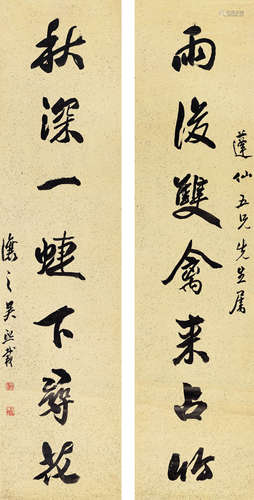 雨後雙禽來占竹
蓮仙五兄先生屬
秋深一蜨下尋花
讓之吳熙載